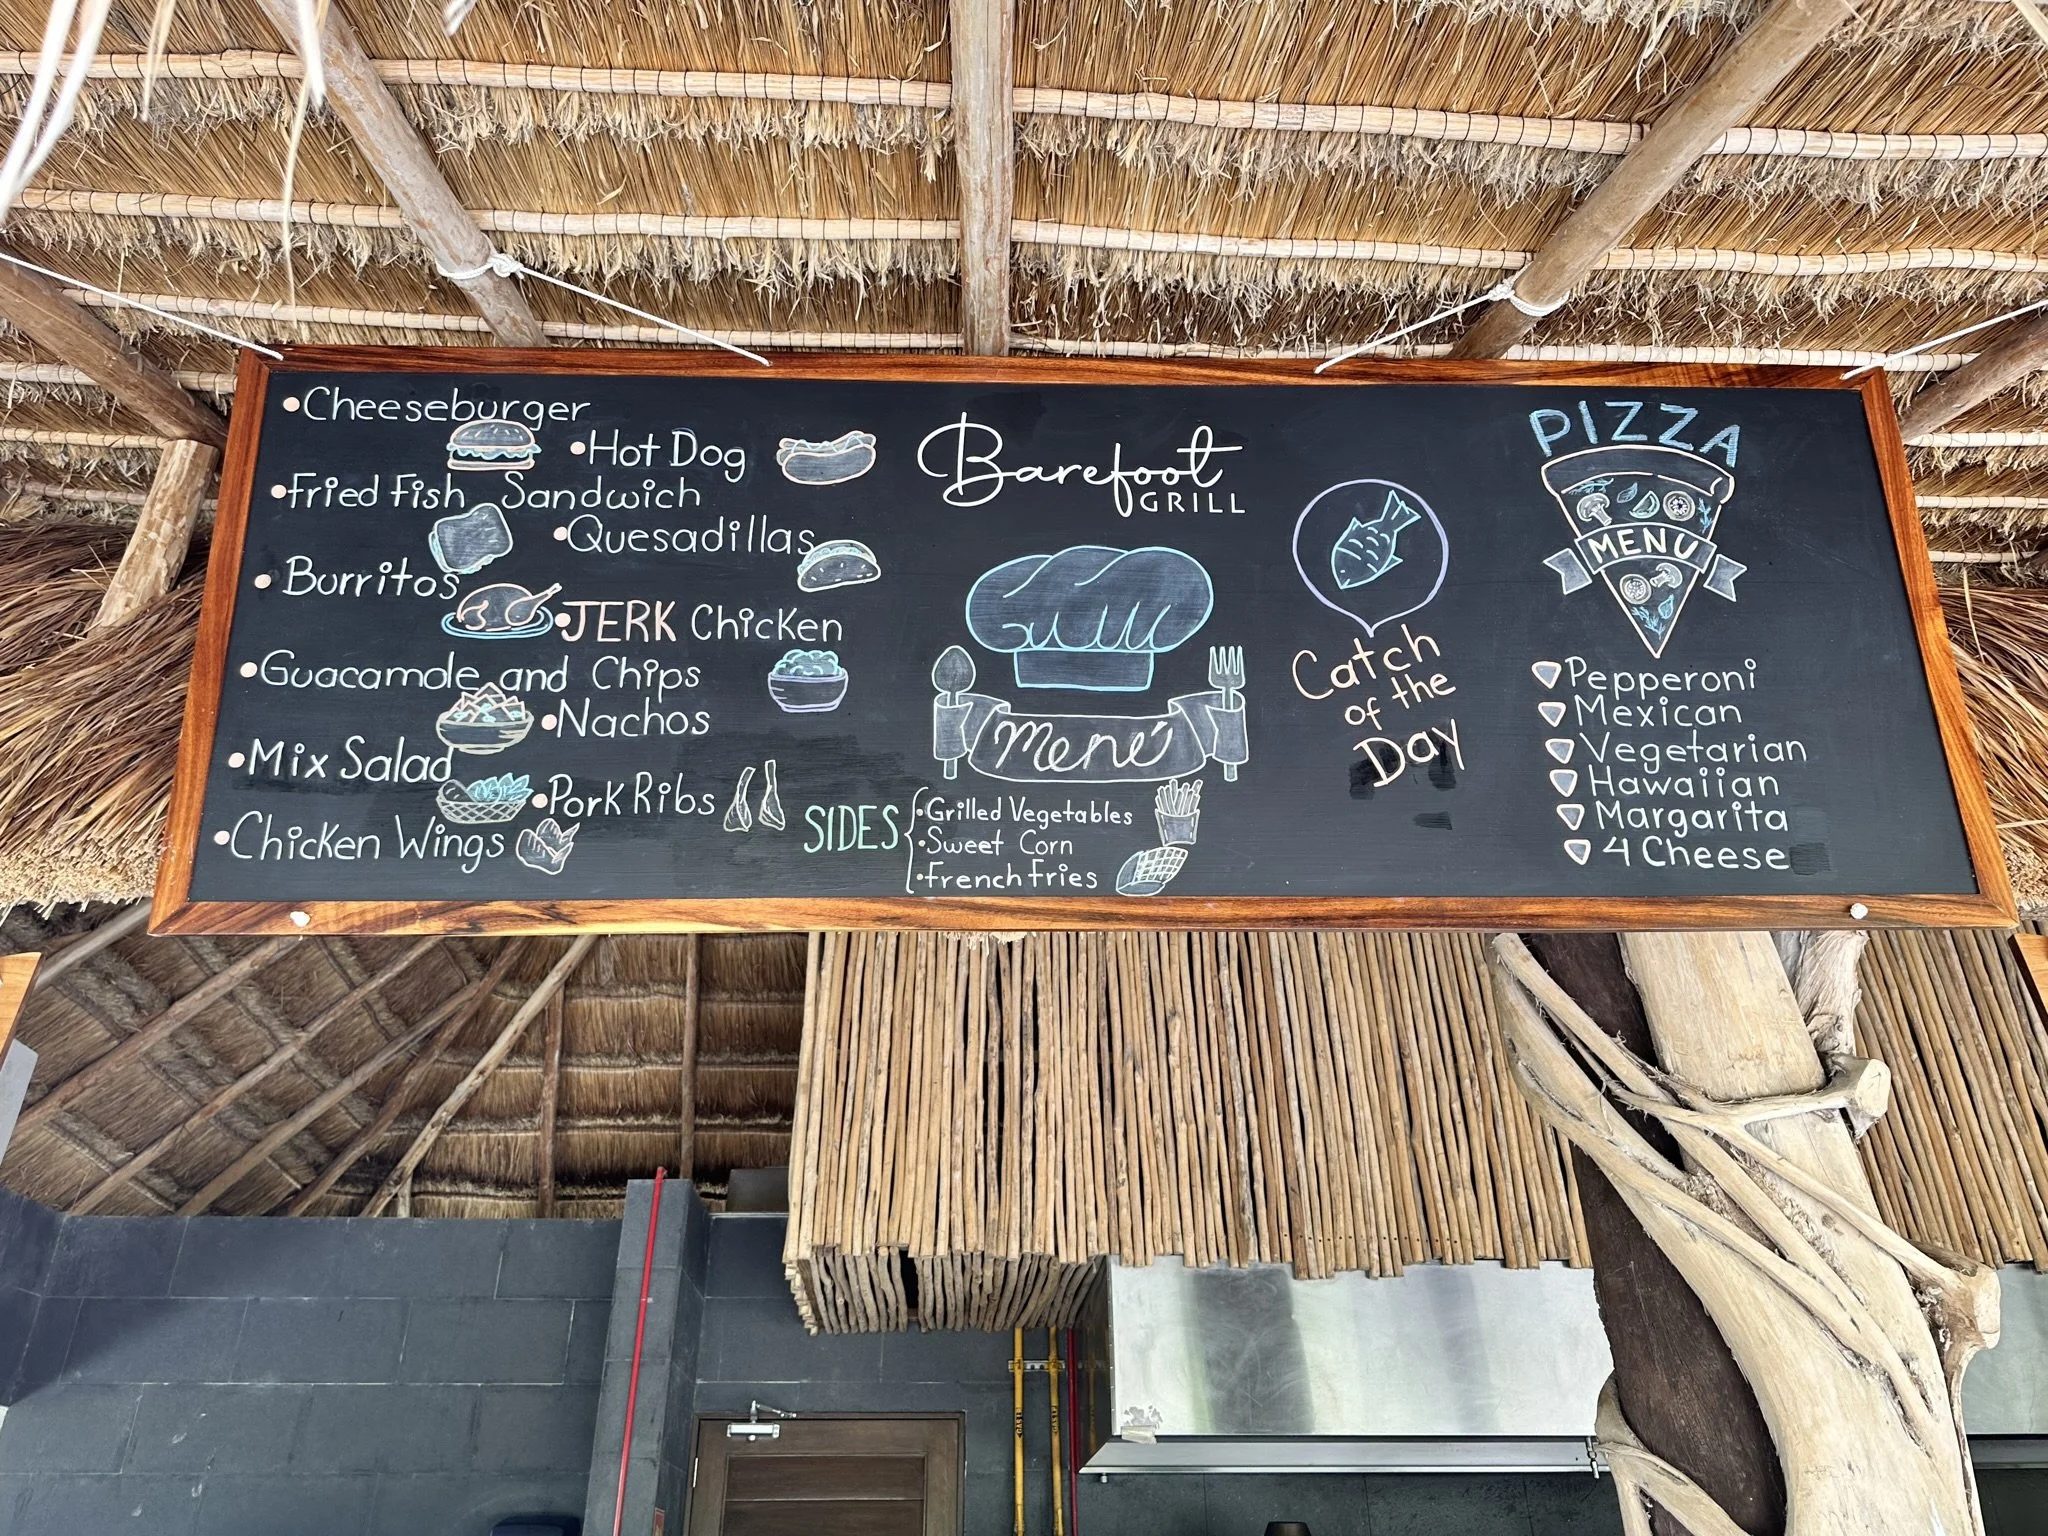 Cheeseburger
Hot Dog
Fried Fish Sandwich
Quesadillas
Burritos
JERK Chicken
Guacamole and Chips
Nachos
Mix Salad
Pork Ribs
Chicken Wings
Barefoot
GRILL
Menú
SIDES
Grilled Vegetables
Sweet Corn
French Fries
Catch
of the
Day
PIZZA
MENU
Pepperoni
Mexican
Vegetarian
Hawaiian
Margarita
4 Cheese